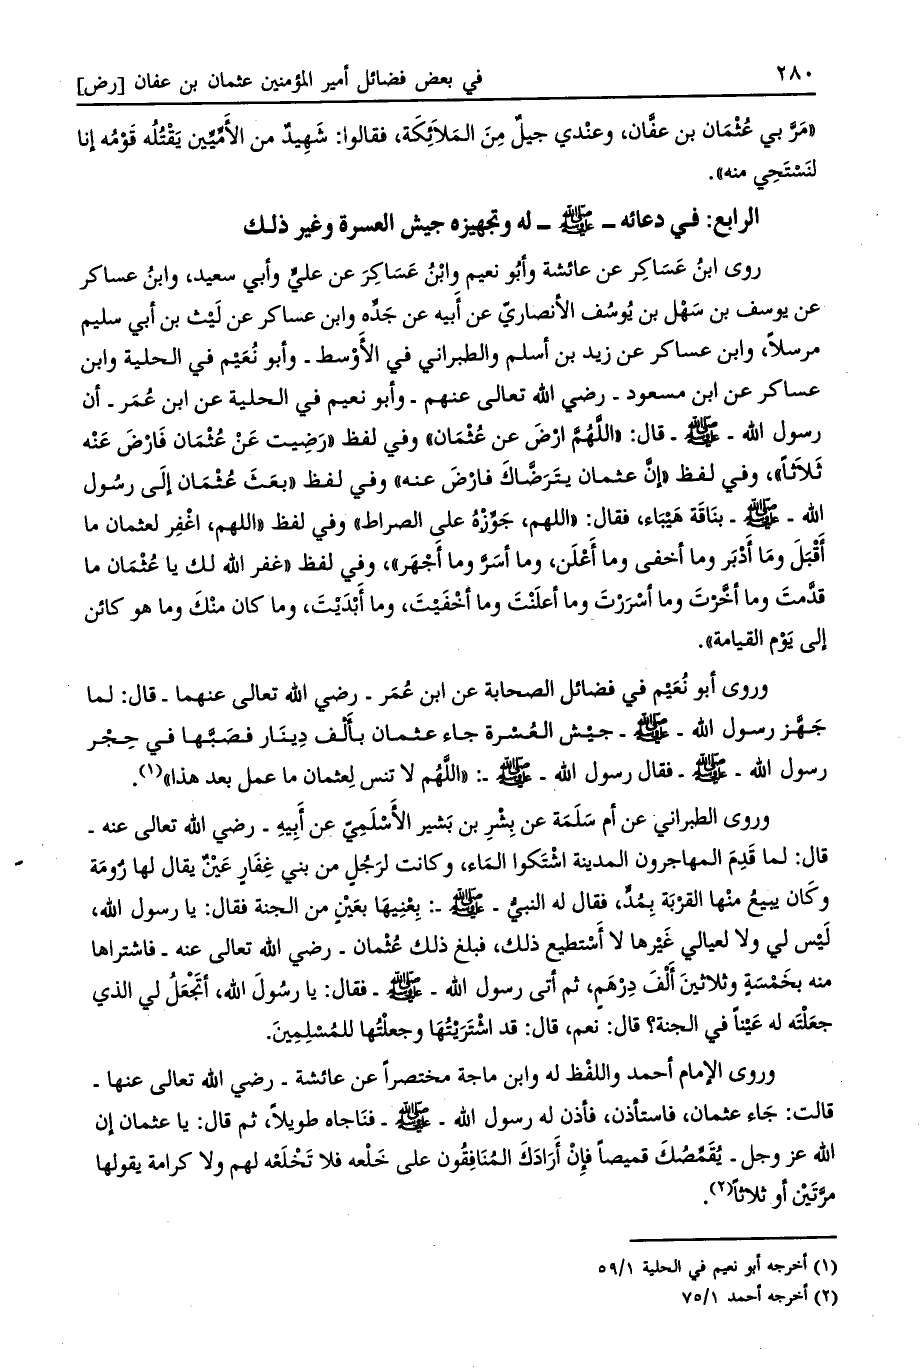 ٢٨٠ في بعض فضائل أمير المؤمنين عثمان بن عفان [رض]
«مَرَّ بي عُثْمَان بن عفَّان، وعندي جيلٌ مِنَ المَلَائِكَة، فقالوا: شَهِيدٌ من الأُمِّيِّين يَقْتُلُه قَوْمُه إنا
لنَسْتَحِي منه».
الرابع: في دعائه ـ ﷺ ـ له وتجهيزه جيش العسرة وغير ذلك
روى ابنُ عَسَاكِر عن عائشة وأبُو نعيم وابْنُ عَسَاكِرَ عن عليٍّ وأبي سعيد، وابنُ عساكر
عن يوسف بن سَهْل بن يُوسُف الأنصاريّ عن أَبيه عن جَدِّه وابن عساكر عن لَيْث بن أبي سليم
مرسلاً، وابن عساكر عن زيد بن أسلم والطبراني في الأَوْسط ـ وأبو نُعَيْم في الحلية وابن
عساكر عن ابن مسعود ـ رضي الله تعالى عنهم ـ وأبو نعيم في الحلية عن ابن عُمَر ـ أن
رسول الله ـ ﷺ ـ قال: «اللَّهُمَّ ارْضَ عن عُثْمَان» وفي لفظ «رَضِيت عَنْ عُثْمَان فَارْضَ عَنْه
ثَلَاثاً»، وفي لفظ «إنَّ عثمان يتَرَضَّاكَ فارْضَ عنه» وفي لفظ «بعَثَ عُثْمَان إلَى رسُول
الله ـ ﷺ ـ بنَاقَة هَيْبَاء، فقال: «اللهم، جَوِّزْهُ على الصراط» وفي لفظ «اللهم، اغْفِر لعثمان ما
أَقْبَلَ ومَا أَدْبَر وما أخفى وما أَعْلَن، وما أسَرَّ وما أَجْهَر»، وفي لفظ «غفر الله لك يا عُثْمَان ما
قدَّمتَ وما أخَّرْتَ وما أسْرَرْتَ وما أعلَنْتَ وما أخْفَيْتَ، وما أَبْدَيْتَ، وما كان منْكَ وما هو كائن
إلى يَوْم القيامة».
وروى أبو نُعَيْم في فضائل الصحابة عن ابن عُمَر ـ رضي الله تعالى عنهما ـ قال: لما
جَهَّز رسول الله ـ ﷺ ـ جيْش العُسْرة جاء عثمان بأَلْف دِينَار فصَبَّها في حِجْر
رسول الله ـ ﷺ ـ فقال رسول الله ـ ﷺ ـ: «اللَّهُم لا تنس لِعثمان ما عمل بعد هذا»(١).
وروى الطبراني عن أم سَلَمَة عن بِشْرِ بن بَشير الأَسْلَمِيّ عن أَبِيهِ ـ رضي الله تعالى عنه ـ
قال: لما قَدِمَ المهاجرون المدينة اشْتَكوا المَاء، وكانت لرَجُلٍ من بني غِفَارٍ عَيْنٌ يقال لها رُومَة
وكَان يبيعُ منْها القرْبَة بِمُدٍّ، فقال له النبيُّ ـ ﷺ ـ: بِعْنِيهَا بعَيْنٍ من الجنة فقال: يا رسول الله،
لَيْس لي ولا لعيالي غَيْرها لا أَسْتطيع ذلك، فبلغ ذلك عُثْمان ـ رضي الله تعالى عنه ـ فاشتراها
منه بخَمْسَةٍ وثلاثينَ أَلْفَ دِرْهَمٍ، ثم أتى رسول الله ـ ﷺ ـ فقال: يا رسُولَ الله، أتَجْعَلُ لي الذي
جعَلْتَه له عَيْناً في الجنة؟ قال: نعم، قال: قد اشْتَرَيْتُهَا وجعلْتُها للمُسْلِمِينَ.
وروى الإمام أحمد واللفْظ له وابن ماجة مختصراً عن عائشة ـ رضي الله تعالى عنها ـ
قالت: جَاء عثمان، فاستأذن، فأذن له رسول الله ـ ﷺ ـ فنَاجاه طويلاً، ثم قال: يا عثمان إن
الله عز وجل ـ يُقَمِّصُكَ قميصاً فإنْ أَرَادَكَ المُنَافِقُون على خَلْعه فلا تَخْلَعْه لهم ولا كرامة يقولها
مرَّتَيْن أو ثلاثاً(٢).
(١) أخرجه أبو نعيم في الحلية ٥٩/١
(٢) أخرجه أحمد ٧٥/١